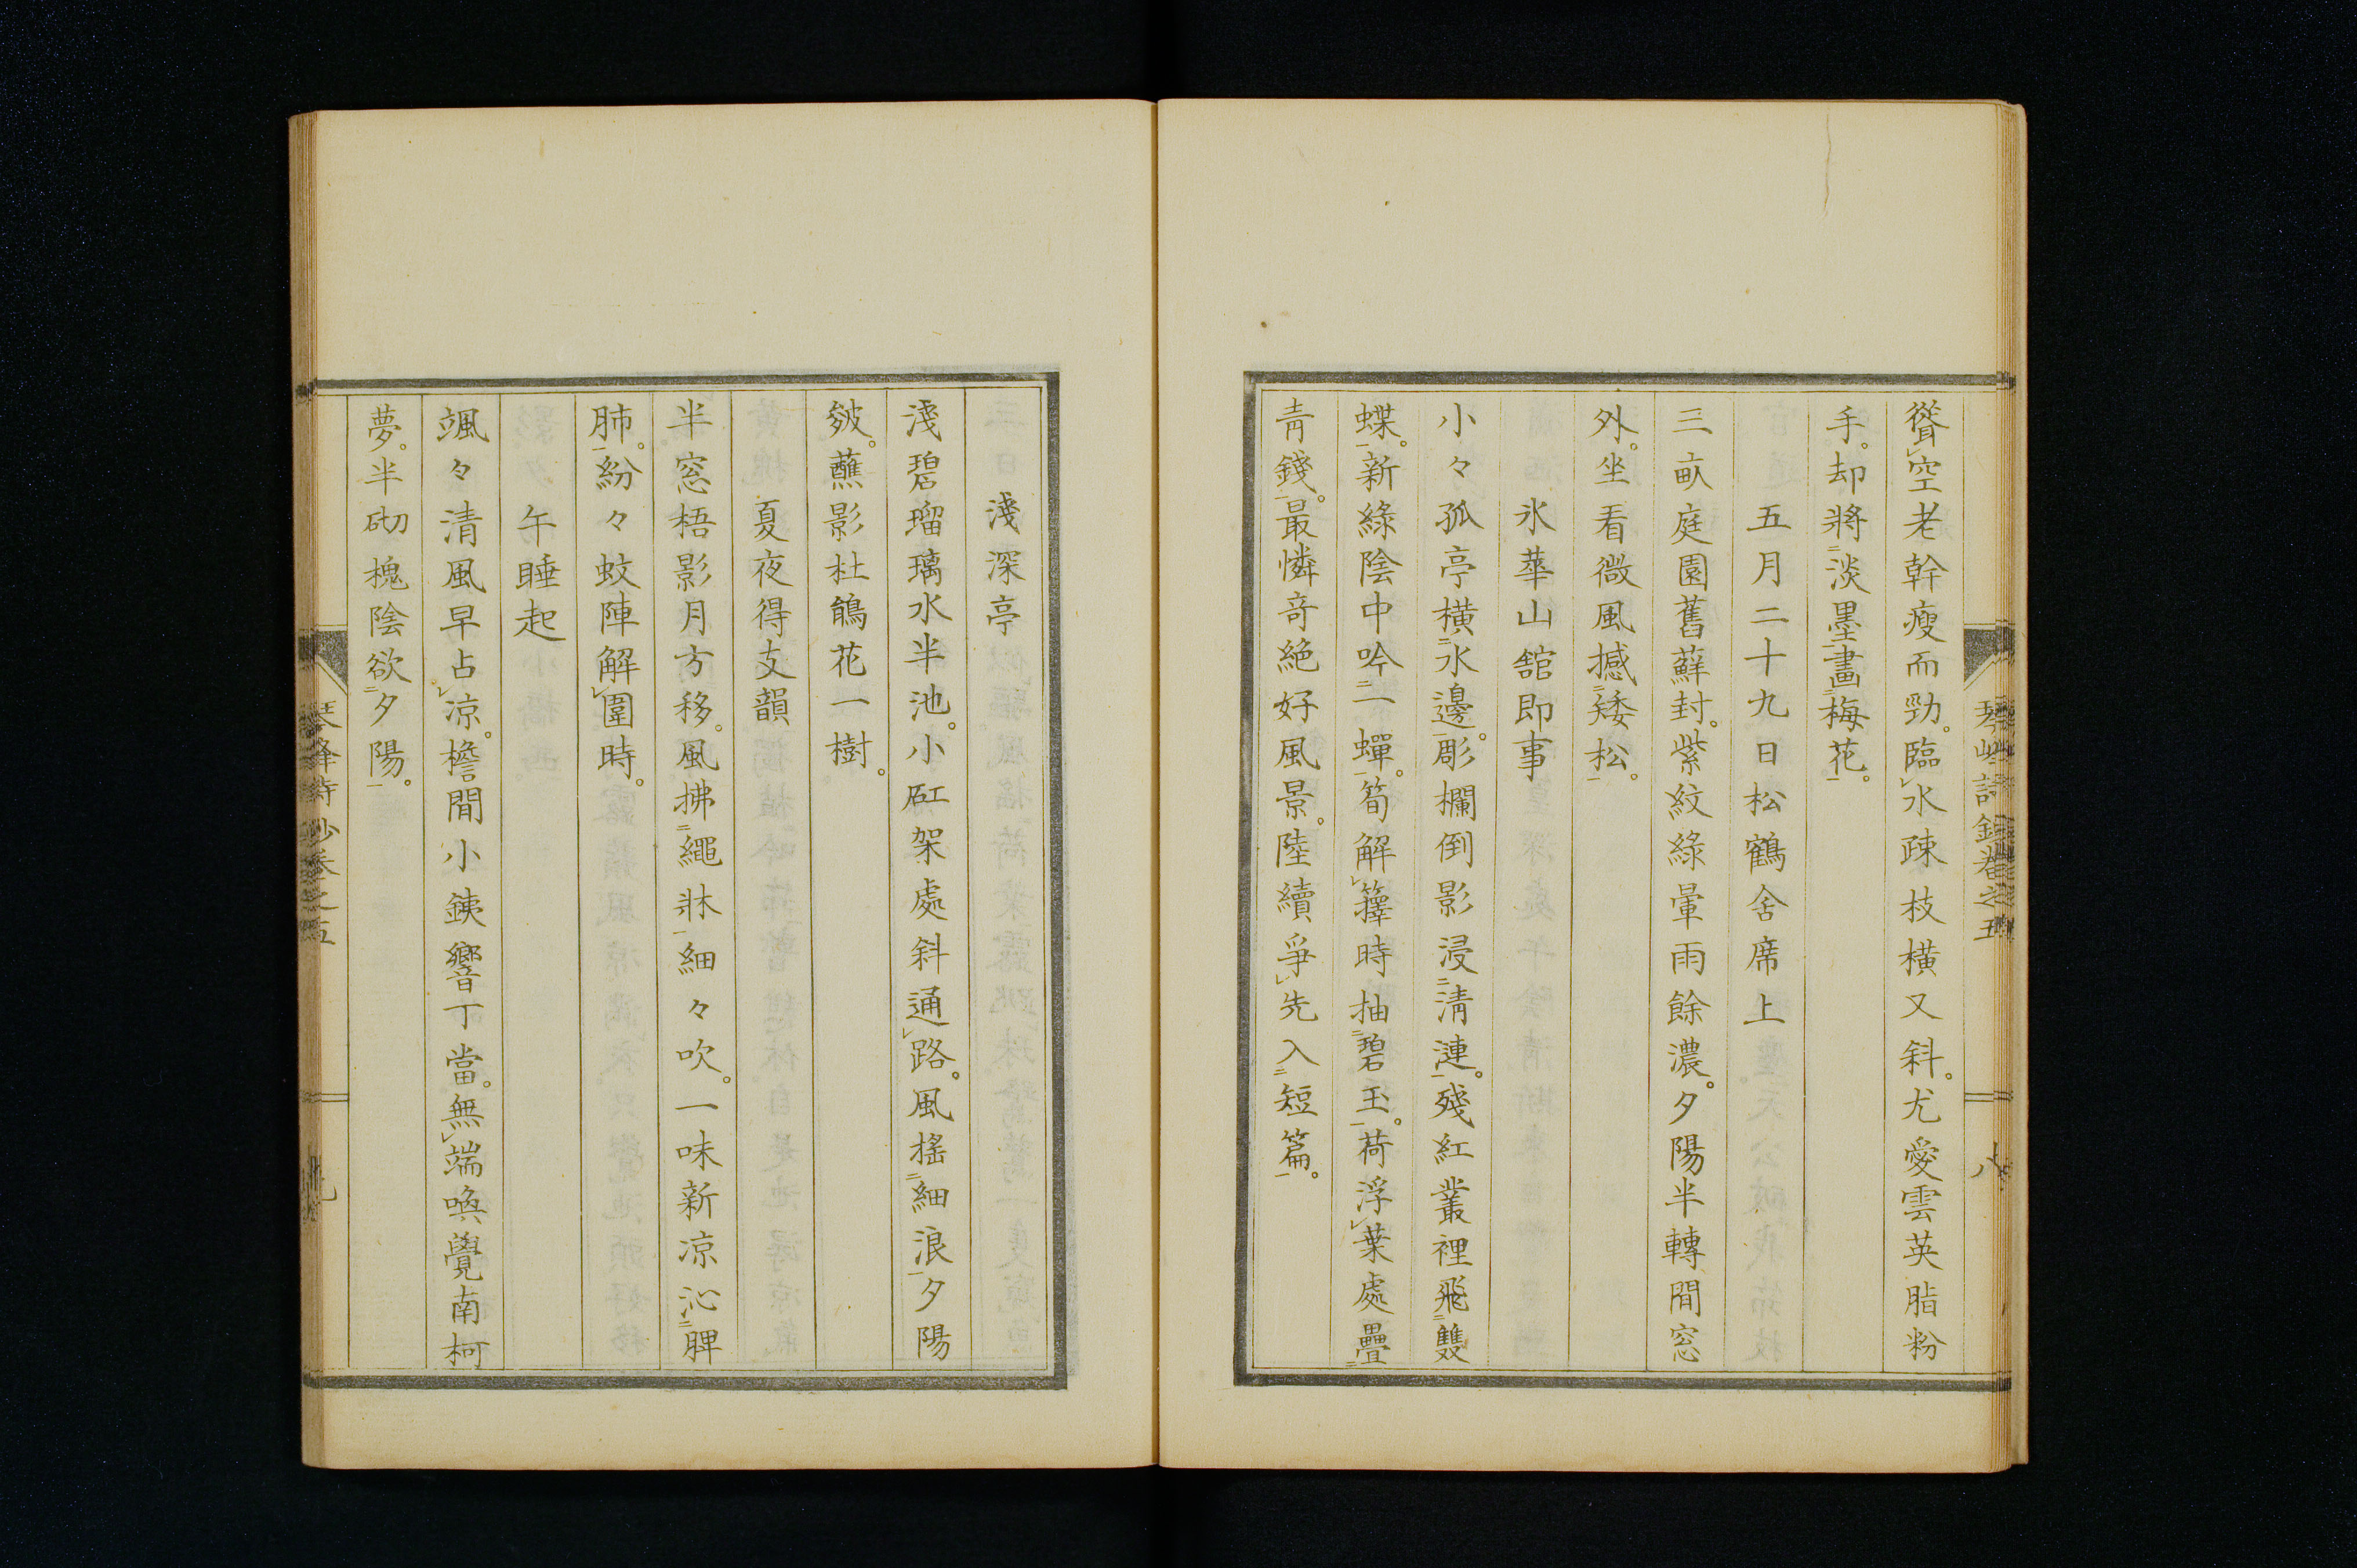 聳空老幹瘦而勁。臨水疎枝橫又斜。尤愛雲英脂粉
手。却將淡墨畫梅花。
五月二十九日松鶴舍席上
三畝庭園舊蘚封。紫紋綠暈雨餘濃。夕陽半轉閒窓
外。坐看微風撼矮松。
氷華山舘即事
小々孤亭橫水邊。彫欄倒影浸淸漣。殘紅叢裡飛雙
蝶。新綠陰中吟一蟬。筍解籜時抽碧玉。荷浮葉處疊
靑錢。最憐奇絕好風景。陸續爭先入短篇。
淺深亭
淺碧瑠璃水半池。小矼架處斜通路。風搖細浪夕陽
皴。蘸影杜鵑花一樹。
夏夜得支韻
半窓梧影月方移。風拂繩牀細々吹。一味新凉沁脾
肺。紛々蚊陣解圍時。
午睡起
颯々清風早占凉。檐間小鐵響丁當。無端喚覺南柯
夢。半砌槐陰欲夕陽。
詩鈔卷之五
八